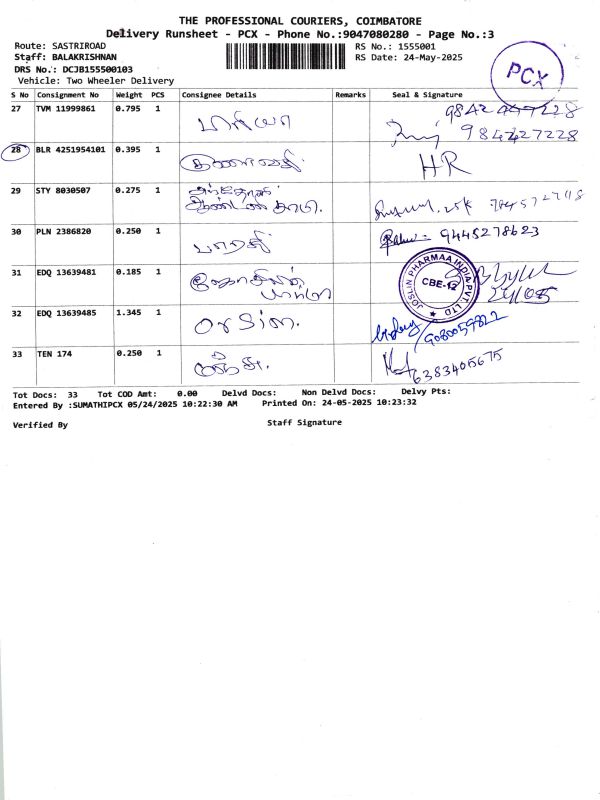 THE PROFESSIONAL COURIERS, COIMBATORE
Delivery Runsheet - PCX - Phone No.:9047080280 - Page No.:3
Route: SASTRIROAD
RS No.: 1555001
Staff: BALAKRISHNAN
RS Date: 24-May-2025
DRS No.: DCJB155500103
Vehicle: Two Wheeler Delivery
PCX
S No Consignment No Weight PCS Consignee Details Remarks Seal & Signature
27 TVM 11999861 0.795 1
9842447228
984427228
28 BLR 4251954101 0.395 1 HR
29 STY 8030507 0.275 1
30 PLN 2386820 0.250 1 பாரதி 9445278623
31 EDQ 13639481 0.185 1
JOSLIN PHARMAA INDIA PVT LTD
CBE-12
24/05
32 EDQ 13639485 1.345 1
9080059822
33 TEN 174 0.250 1
6383405675
Tot Docs: 33 Tot COD Amt: 0.00 Delvd Docs: Non Delvd Docs: Delvy Pts:
Entered By :SUMATHIPCX 05/24/2025 10:22:30 AM Printed On: 24-05-2025 10:23:32
Verified By
Staff Signature